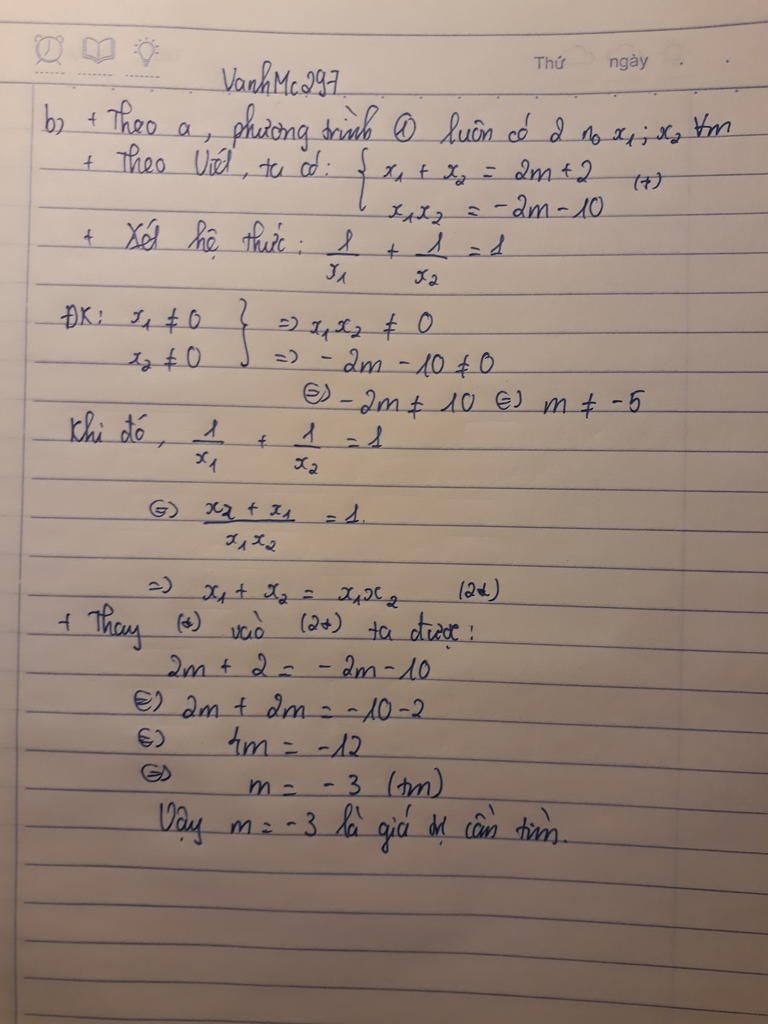 Thứ ngày
VanhMc297
b) + Theo a, phương trình ① luôn có 2 no x₁; x₂ ∀m
+ Theo Viét, ta có: { x₁ + x₂ = 2m + 2
x₁x₂ = -2m - 10 (*)
+ Xét hệ thức: 1/x₁ + 1/x₂ = 1
ĐK: x₁ ≠ 0 } => x₁x₂ ≠ 0
x₂ ≠ 0 => -2m - 10 ≠ 0
⇔ -2m ≠ 10 ⇔ m ≠ -5
Khi đó, 1/x₁ + 1/x₂ = 1
⇔ (x₂ + x₁)/(x₁x₂) = 1.
=> x₁ + x₂ = x₁x₂ (2*)
+ Thay (*) vào (2*) ta được:
2m + 2 = -2m - 10
⇔ 2m + 2m = -10 - 2
⇔ 4m = -12
⇔ m = -3 (tm)
Vậy m = -3 là giá trị cần tìm.